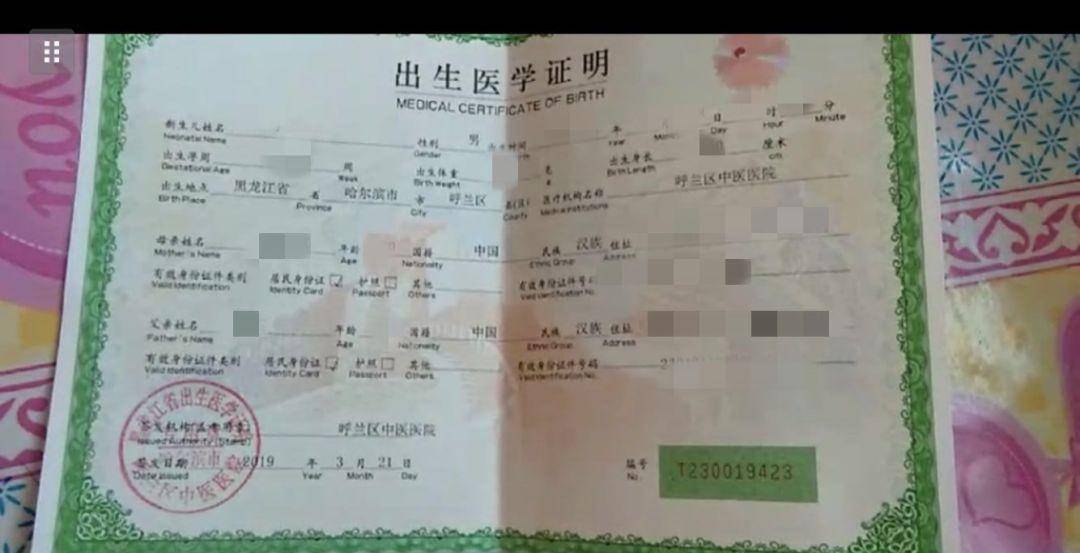 出生医学证明
MEDICAL CERTIFICATE OF BIRTH
新生儿姓名 性别 男 出生时间 年 月 日 时 分
Neonatal Name Gender Year Month Day Hour Minute
出生孕周 周 出生体重 克 出生身长 厘米
Gestational Age Week Birth Weight g Birth Length cm
出生地点 黑龙江省 省 哈尔滨市 市 呼兰区 县(区) 医疗机构名称 呼兰区中医医院
Birth Place Province City County Medical Institutions
母亲姓名 年龄 国籍 中国 民族 汉族 住址
Mother's Name Age Nationality Ethnic Group Address
有效身份证件类别 居民身份证 护照 其他 有效身份证件号
Valid Identification Identity Card Passport Others Valid Identification No.
父亲姓名 年龄 国籍 中国 民族 汉族 住址
Father's Name Age Nationality Ethnic Group Address
有效身份证件类别 居民身份证 护照 其他 有效身份证件号码 2
Valid Identification Identity Card Passport Others Valid Identification No.
签发机构(盖专用章) 呼兰区中医医院
Issued Authority (Stamp)
签发日期 2019 年 3 月 21 日
Date Issued Year Month Day
编号 T230019423
No.
you